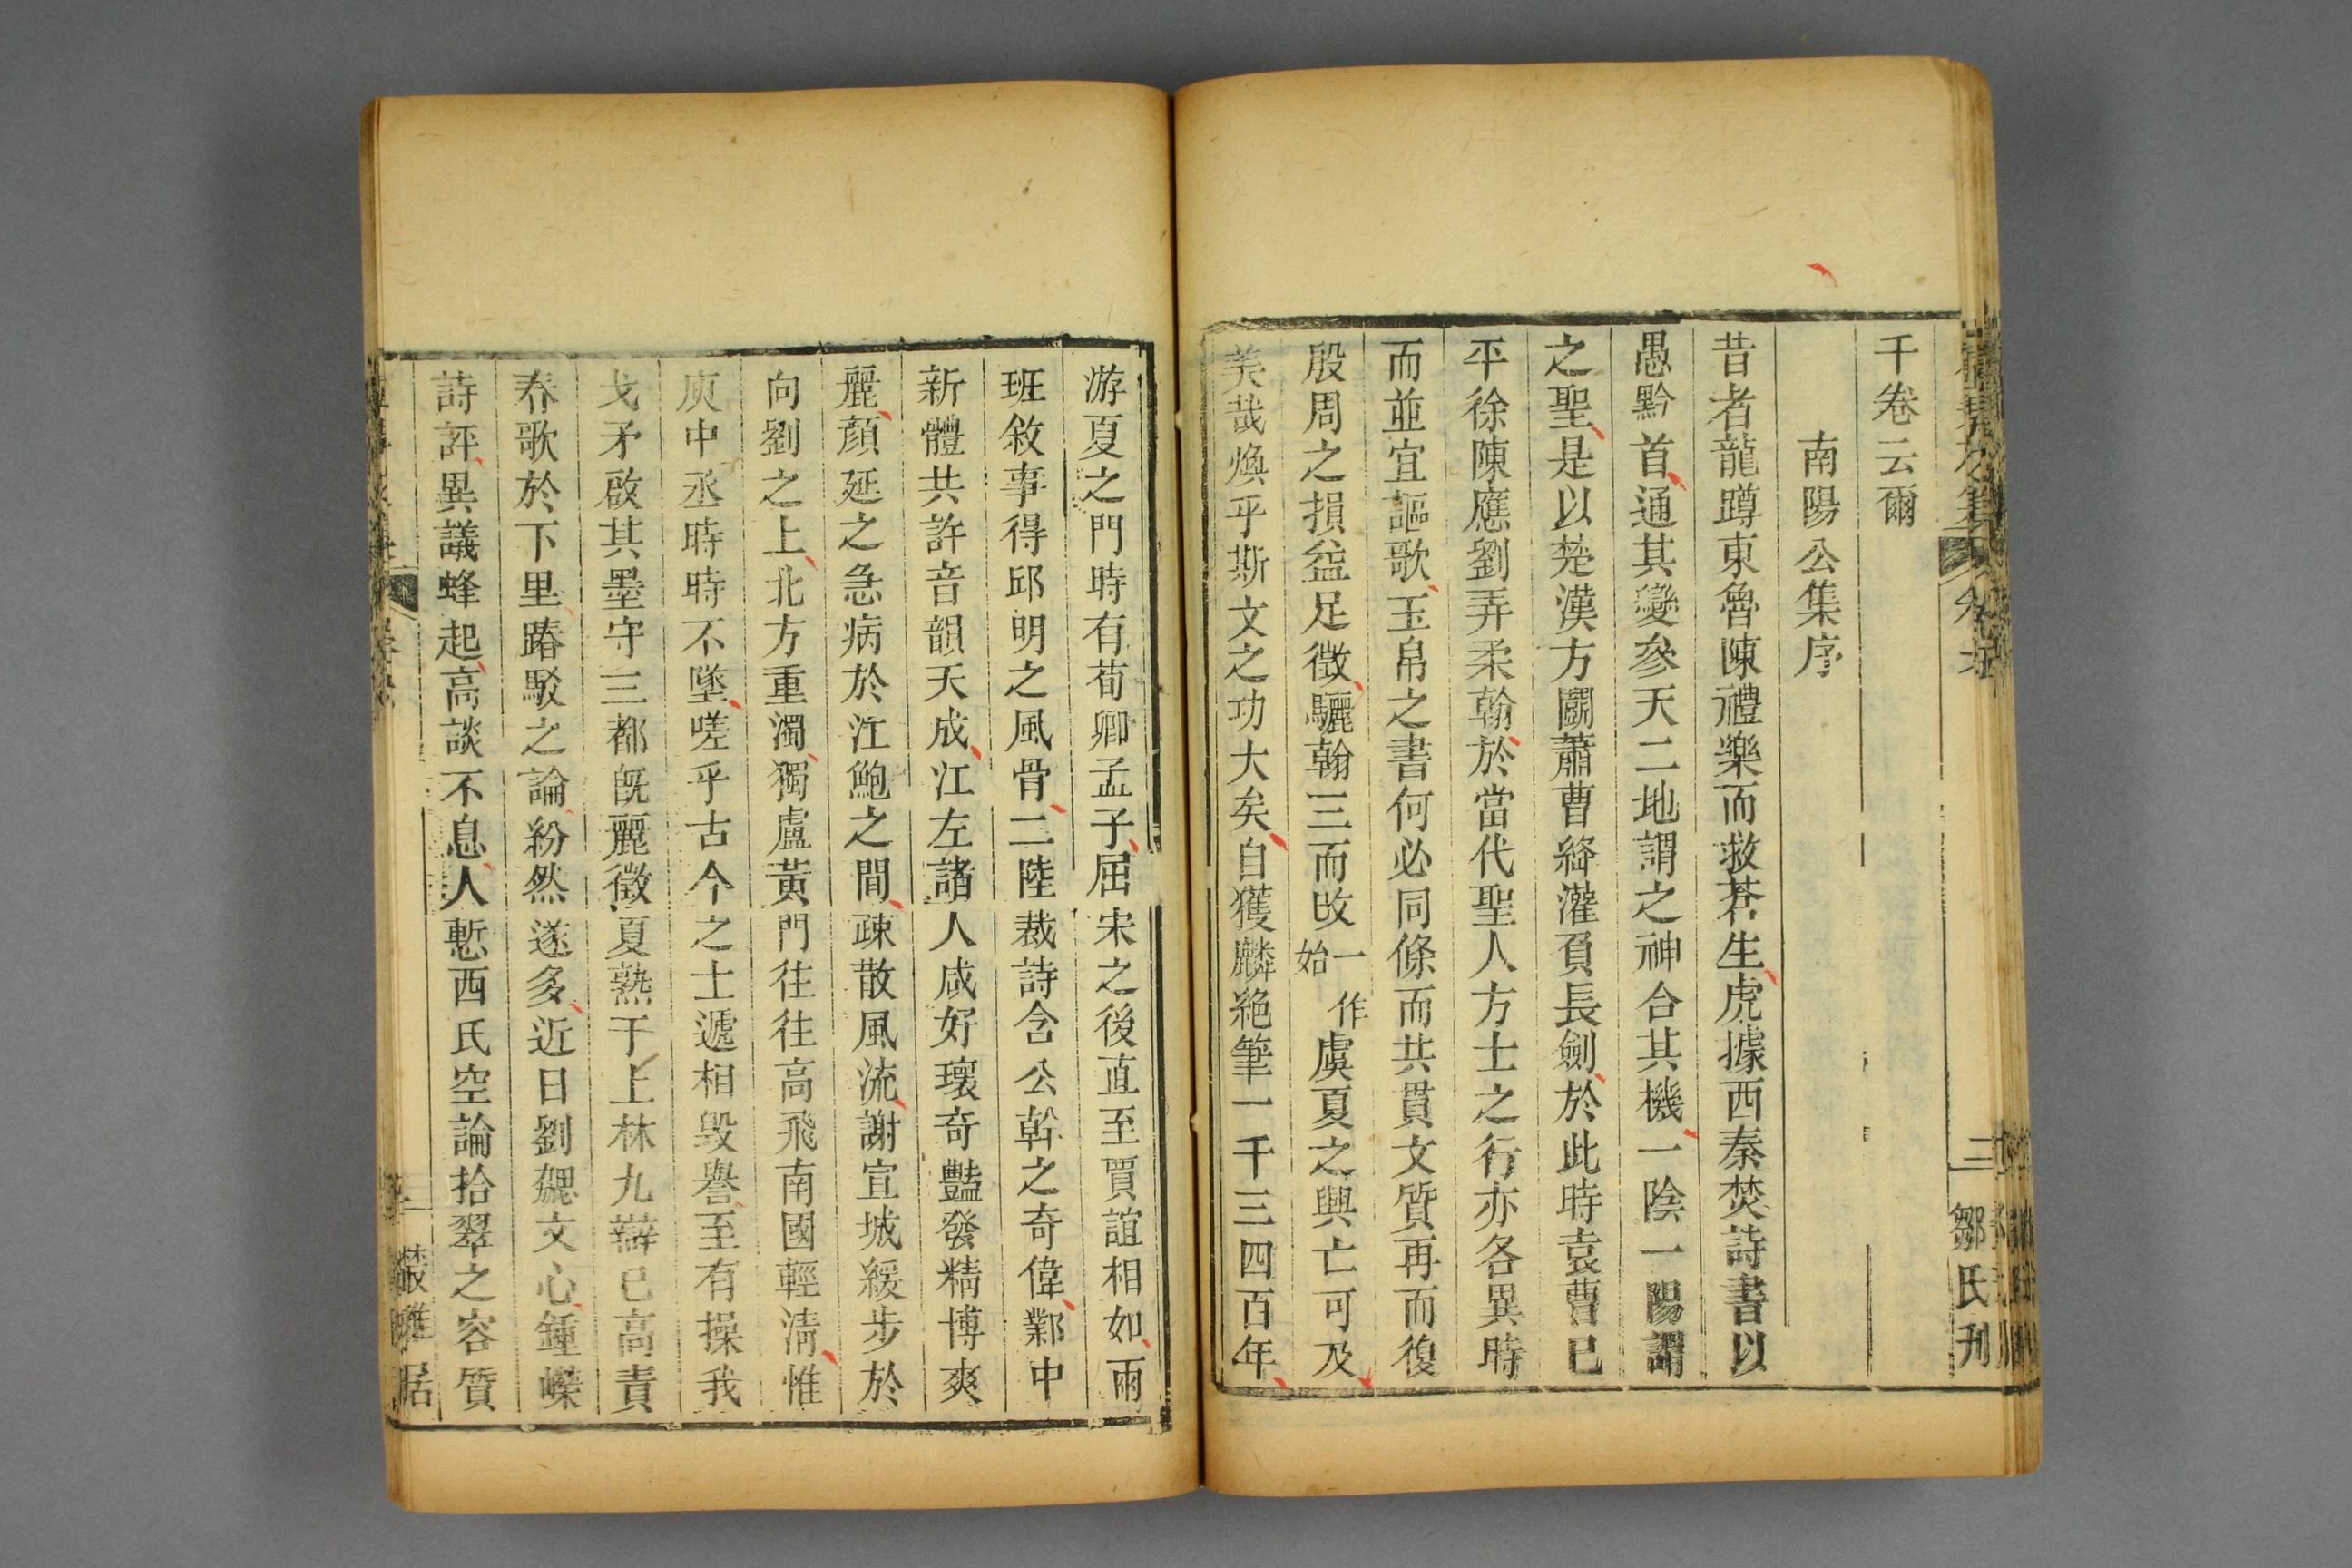 千卷云爾
南陽公集序
昔者龍蹲東魯陳禮樂而救蒼生虎據西秦焚詩書以
愚黔首通其變參天二地謂之神合其機一陰一陽謂
之聖是以楚漢方鬬蕭曹絳灌負長劍於此時袁曹已
平徐陳應劉弄柔翰於當代聖人方士之行亦各異時
而並宜謳歌玉帛之書何必同條而共貫文質再而復
殷周之損益足徵驪翰三而改一作始虞夏之興亡可及
美哉煥乎斯文之功大矣自獲麟絕筆一千三四百年
三 鄒氏刊
游夏之門時有荀卿孟子屈宋之後直至賈誼相如兩
班敘事得邱明之風骨二陸裁詩含公幹之奇偉鄴中
新體共許音韻天成江左諸人咸好瓌奇豔發精博爽
麗顏延之急病於江鮑之間疎散風流謝宣城緩步於
向劉之上北方重濁獨盧黃門往往高飛南國輕清惟
庾中丞時時不墜嗟乎古今之士遞相毀譽至有操我
戈矛啟其墨守三都既麗徵夏熟于上林九辯已高責
春歌於下里踳駁之論紛然遂多近日劉勰文心鍾嶸
詩評異議蜂起高談不息人慙西氏空論拾翠之容質